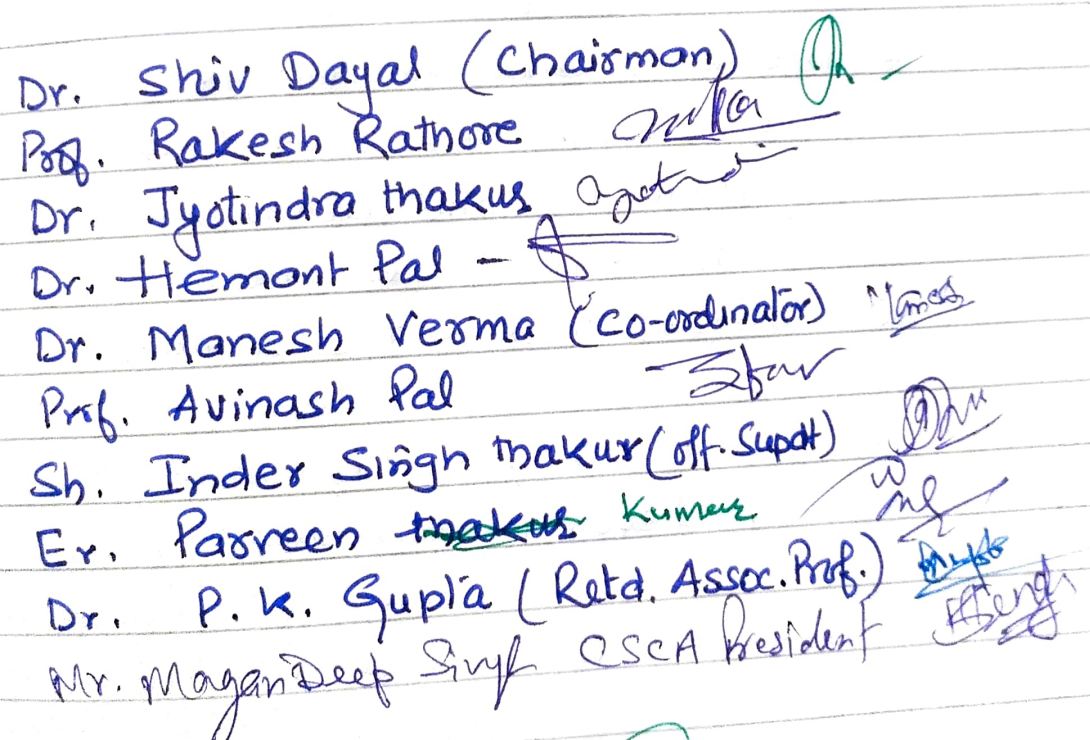 Dr. Shiv Dayal (Chairman)
Prof. Rakesh Rathore
Dr. Jyotindra thakur
Dr. Hemant Pal -
Dr. Manesh Verma (co-ordinator)
Prof. Avinash Pal
Sh. Inder Singh Thakur (off. Supdt)
Er. Parveen thakur Kumar
Dr. P. K. Gupta (Retd. Assoc. Prof.)
Mr. MaganDeep Singh CSCA President